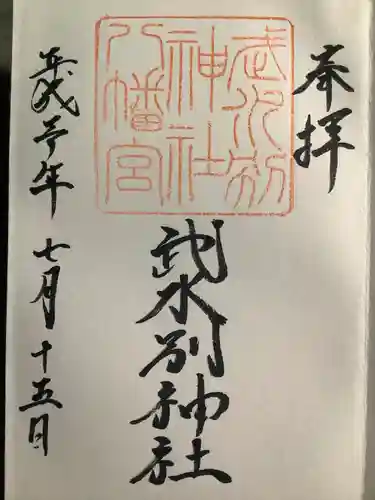 奉拝
武水別
神社
八幡宮
武水別神社
年 七月十五日